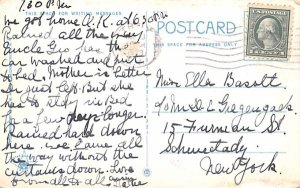 THIS SPACE FOR WRITING MESSAGES
POSTCARD
THIS SPACE FOR ADDRESS ONLY
1:00 P.M.
we got home O.K. at 6:30
Rained all the way
Uncle Geo has the
car washed and just
to bed. Mother is better
or just left. But she
has to stay in bed
for a few days longer.
Rained hard down
here too. Came all
the way without the
curtains down. Love
from all to all
Miss Ella Basett
c/o Mr. D. E. Gregengack
15 Furman St.
Schenectady
New York